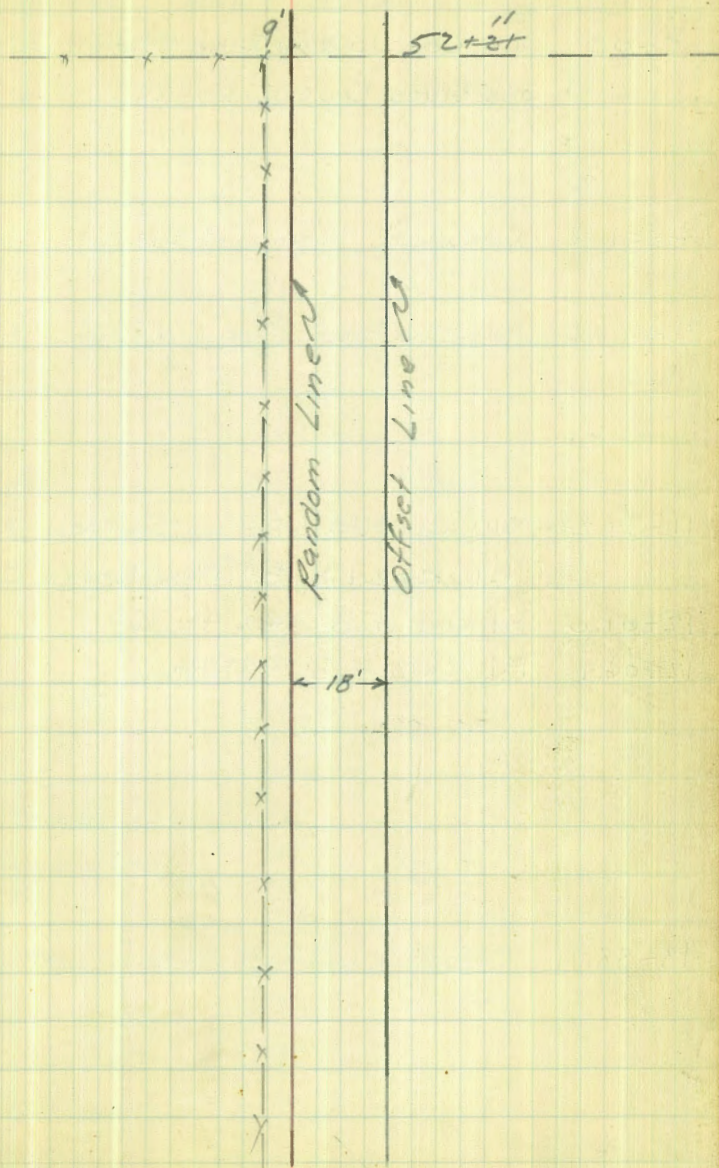 9'
52+21
11
Random Line
Offset Line
18'